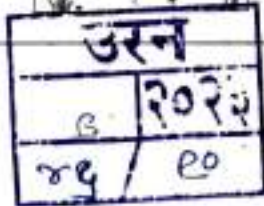 उरन
८ २०२२
४६ / ९०